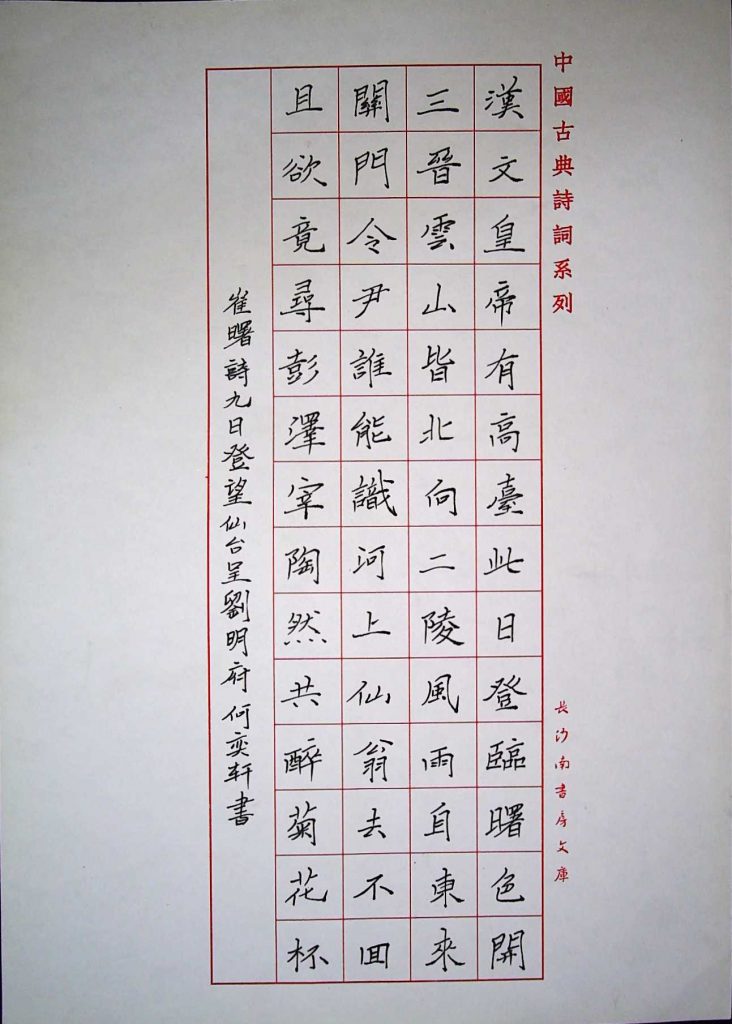 中國古典詩詞系列
漢文皇帝有高臺此日登臨曙色開
三晉雲山皆北向二陵風雨自東來
關門令尹誰能識河上仙翁去不回
且欲竟尋彭澤宰陶然共醉菊花杯
崔曙詩九日登望仙台呈劉明府何奕轩書
長沙南書房文庫